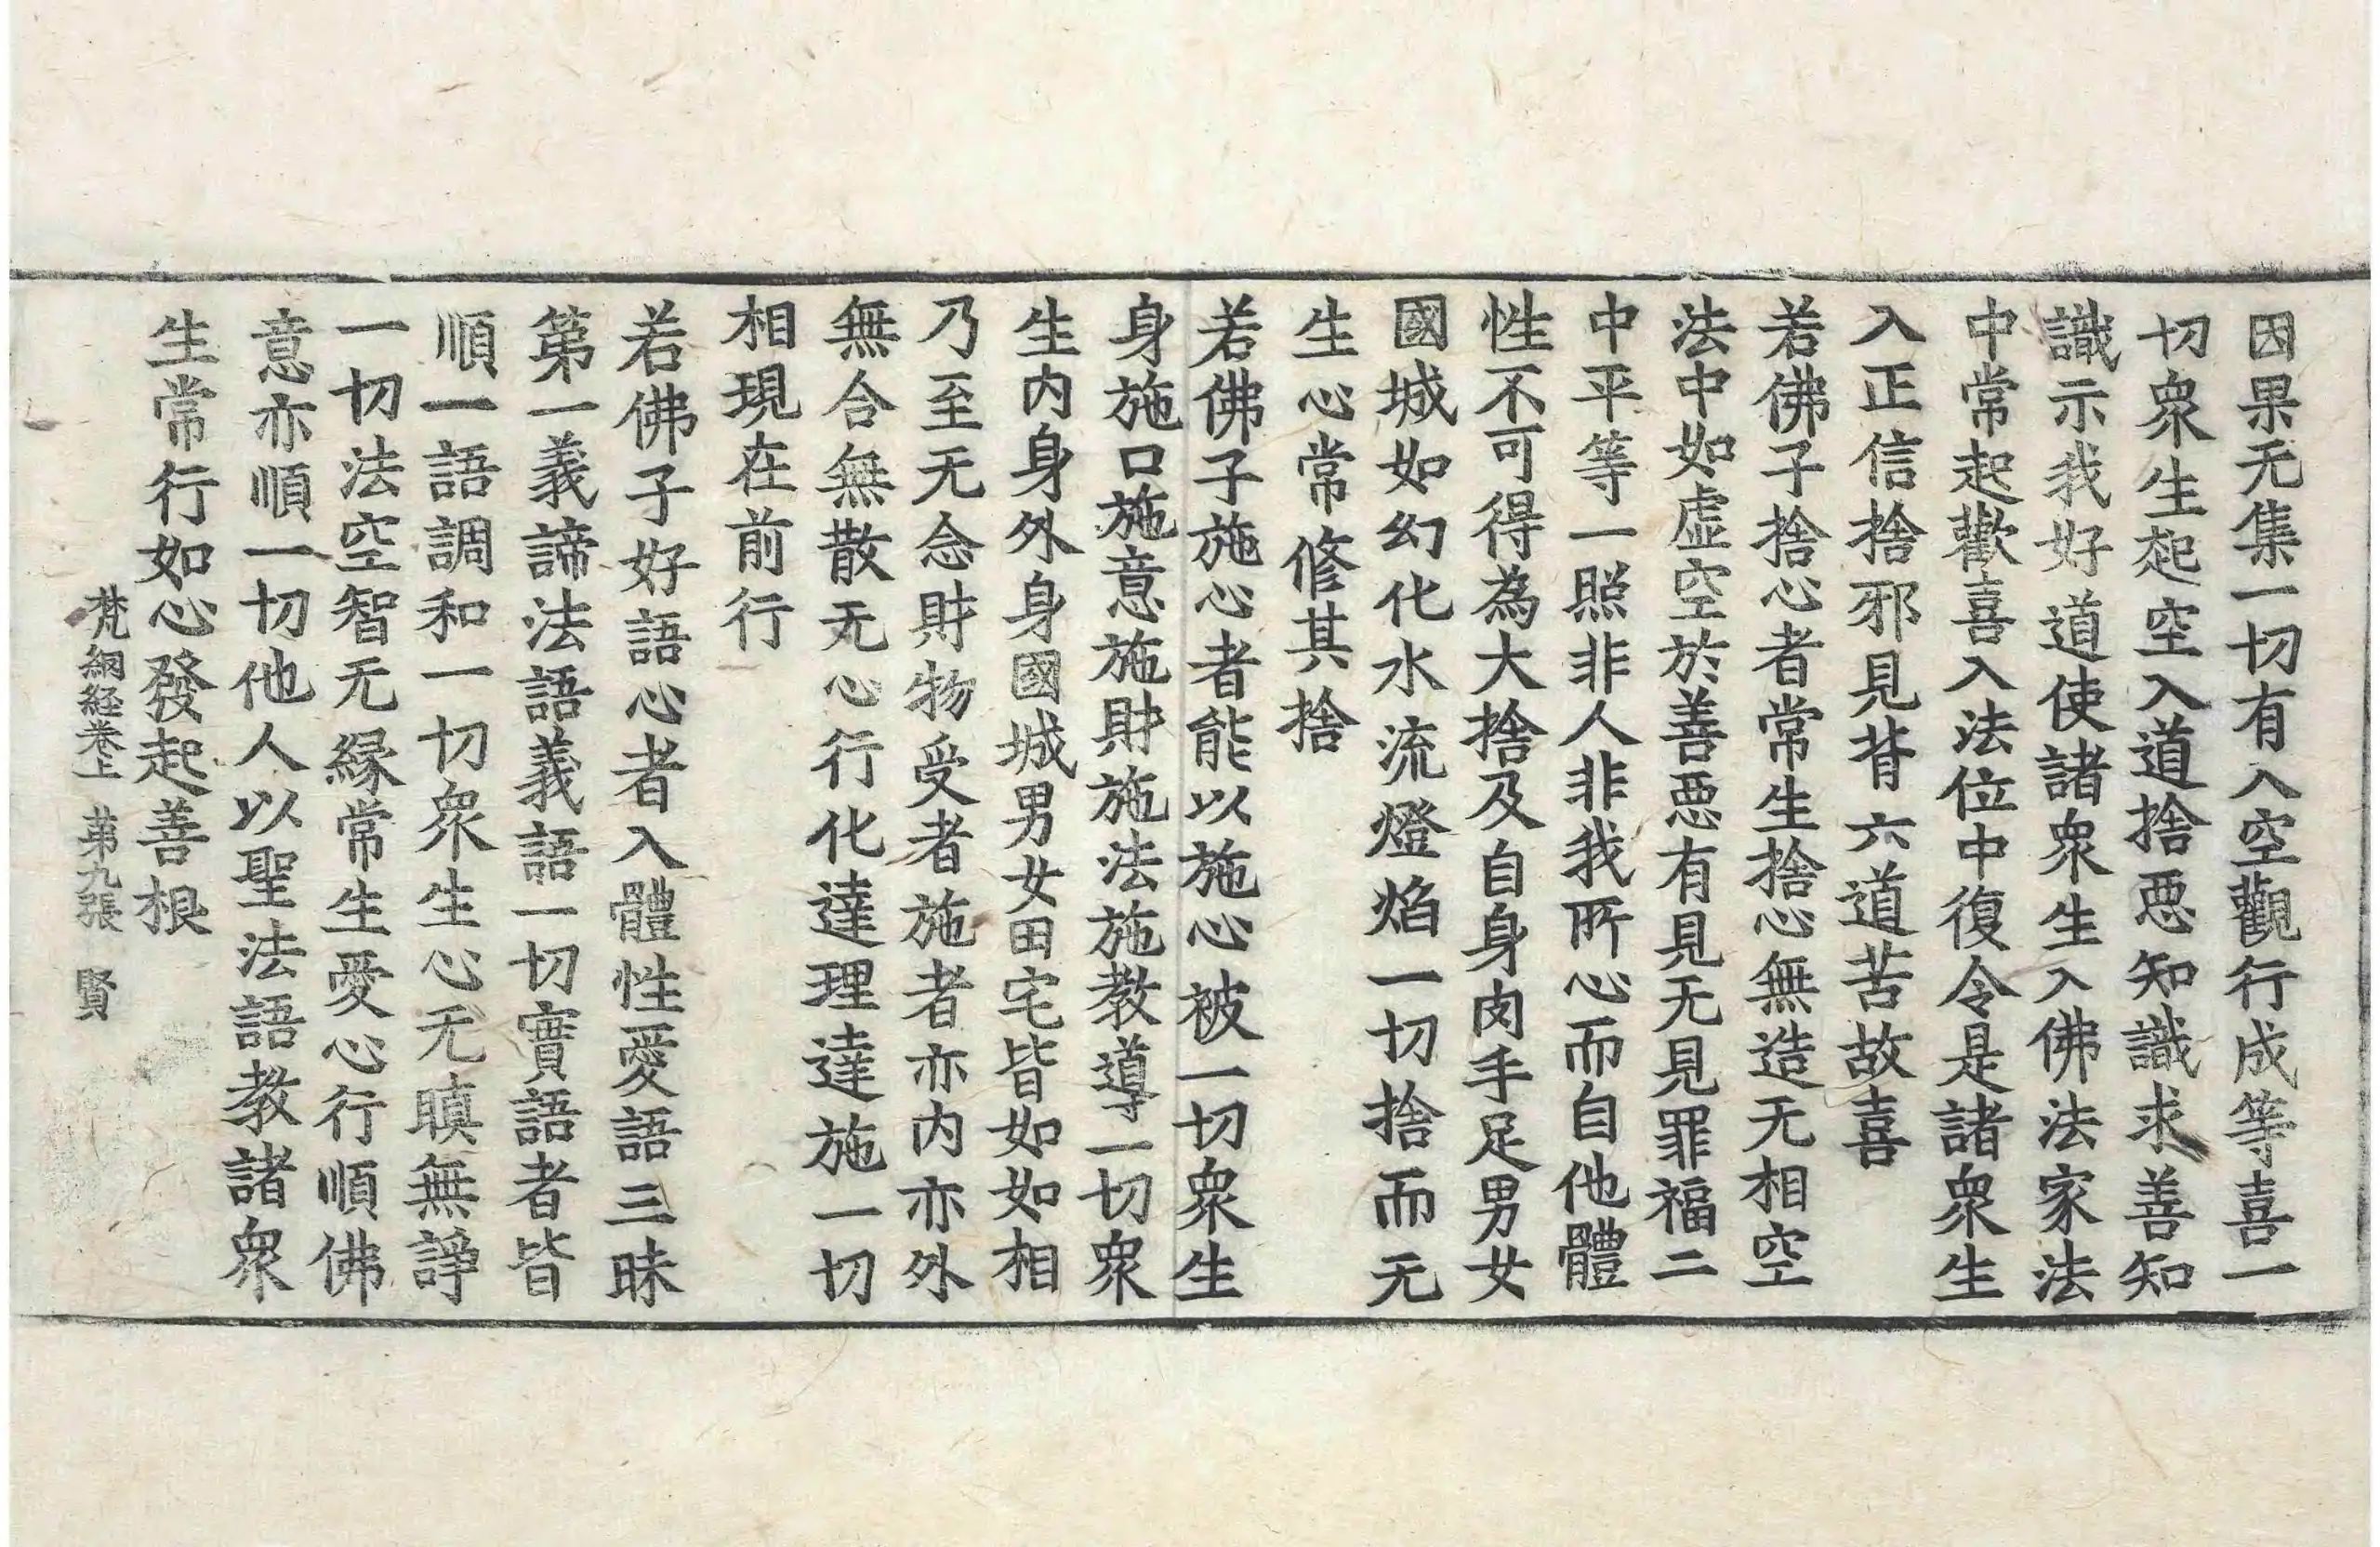 因果无集一切有入空觀行成等喜一
切衆生起空入道捨惡知識求善知
識示我好道使諸衆生入佛法家法
中常起歡喜入法位中復令是諸衆生
入正信捨邪見背六道苦故喜
若佛子捨心者常生捨心無造无相空
法中如虛空於善惡有見无見罪福二
中平等一照非人非我所心而自他體
性不可得為大捨及自身肉手足男女
國城如幻化水流燈焰一切捨而无
生心常修其捨
若佛子施心者能以施心被一切衆生
身施口施意施財施法施教導一切衆
生内身外身國城男女田宅皆如如相
乃至无念財物受者施者亦内亦外
無合無散无心行化達理達施一切
相現在前行
若佛子好語心者入體性愛語三昧
第一義諦法語義語一切實語者皆
順一語調和一切衆生心无瞋無諍
一切法空智无緣常生愛心行順佛
意亦順一切他人以聖法語教諸衆
生常行如心發起善根
梵網経卷上 第九張 賢